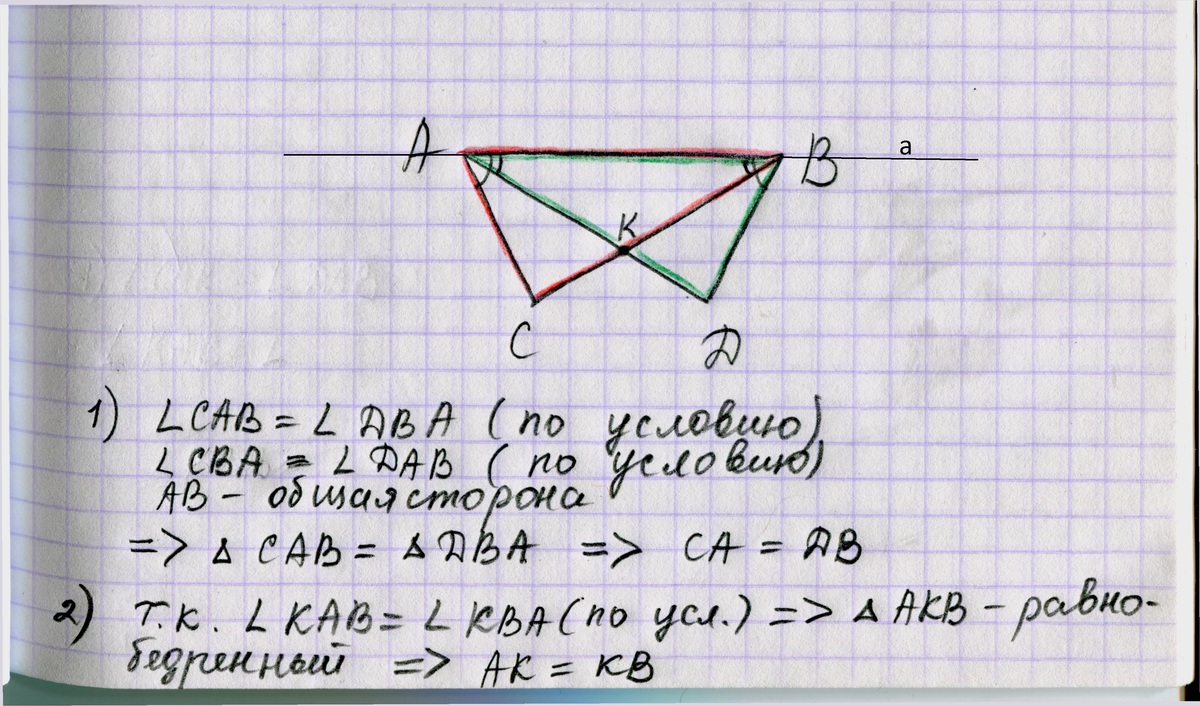 A B a
K
C D
1) ∠CAB = ∠DBA (по условию)
∠CBA = ∠DAB (по условию)
AB - общая сторона
=> Δ CAB = Δ DBA => CA = DB
2) Т.к. ∠KAB = ∠KBA (по усл.) => Δ AKB - равно-
бедренный => AK = KB